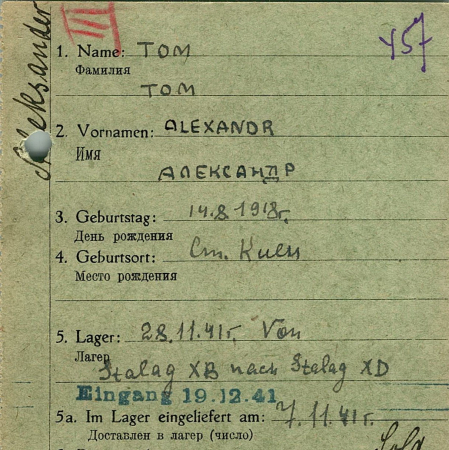 III
У57
Aleksander
1. Name: TOM
Фамилия
TOM
2. Vornamen: ALEXANDR
Имя
АЛЕКСАНДР
3. Geburtstag: 14.8.1918г.
День рождения
4. Geburtsort: Ст. Киев
Место рождения
5. Lager: 28.11.41г. Von
Лагер
Stalag XB nach Stalag XD
Eingang 19.12.41
5a. Im Lager eingeliefert am: 7.11.41г.
Доставлен в лагер (число)